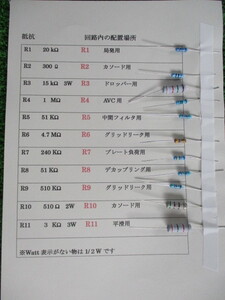 抵抗 回路内の配置場所
R1 20 kΩ R1 局発用
R2 300 Ω R2 カソード用
R3 15 kΩ 5W R3 ドロッパー用
R4 1 MΩ R4 AVC 用
R5 51 KΩ R5 中間フィルタ用
R6 4.7 MΩ R6 グリッドリーク用
R7 240 KΩ R7 プレート負荷用
R8 51 KΩ R8 デカップリング用
R9 510 KΩ R9 グリッドリーク用
R10 510 Ω 2W R10 カソード用
R11 3 KΩ 3W R11 平滑用
※Watt 表示がない物は 1/2 W です